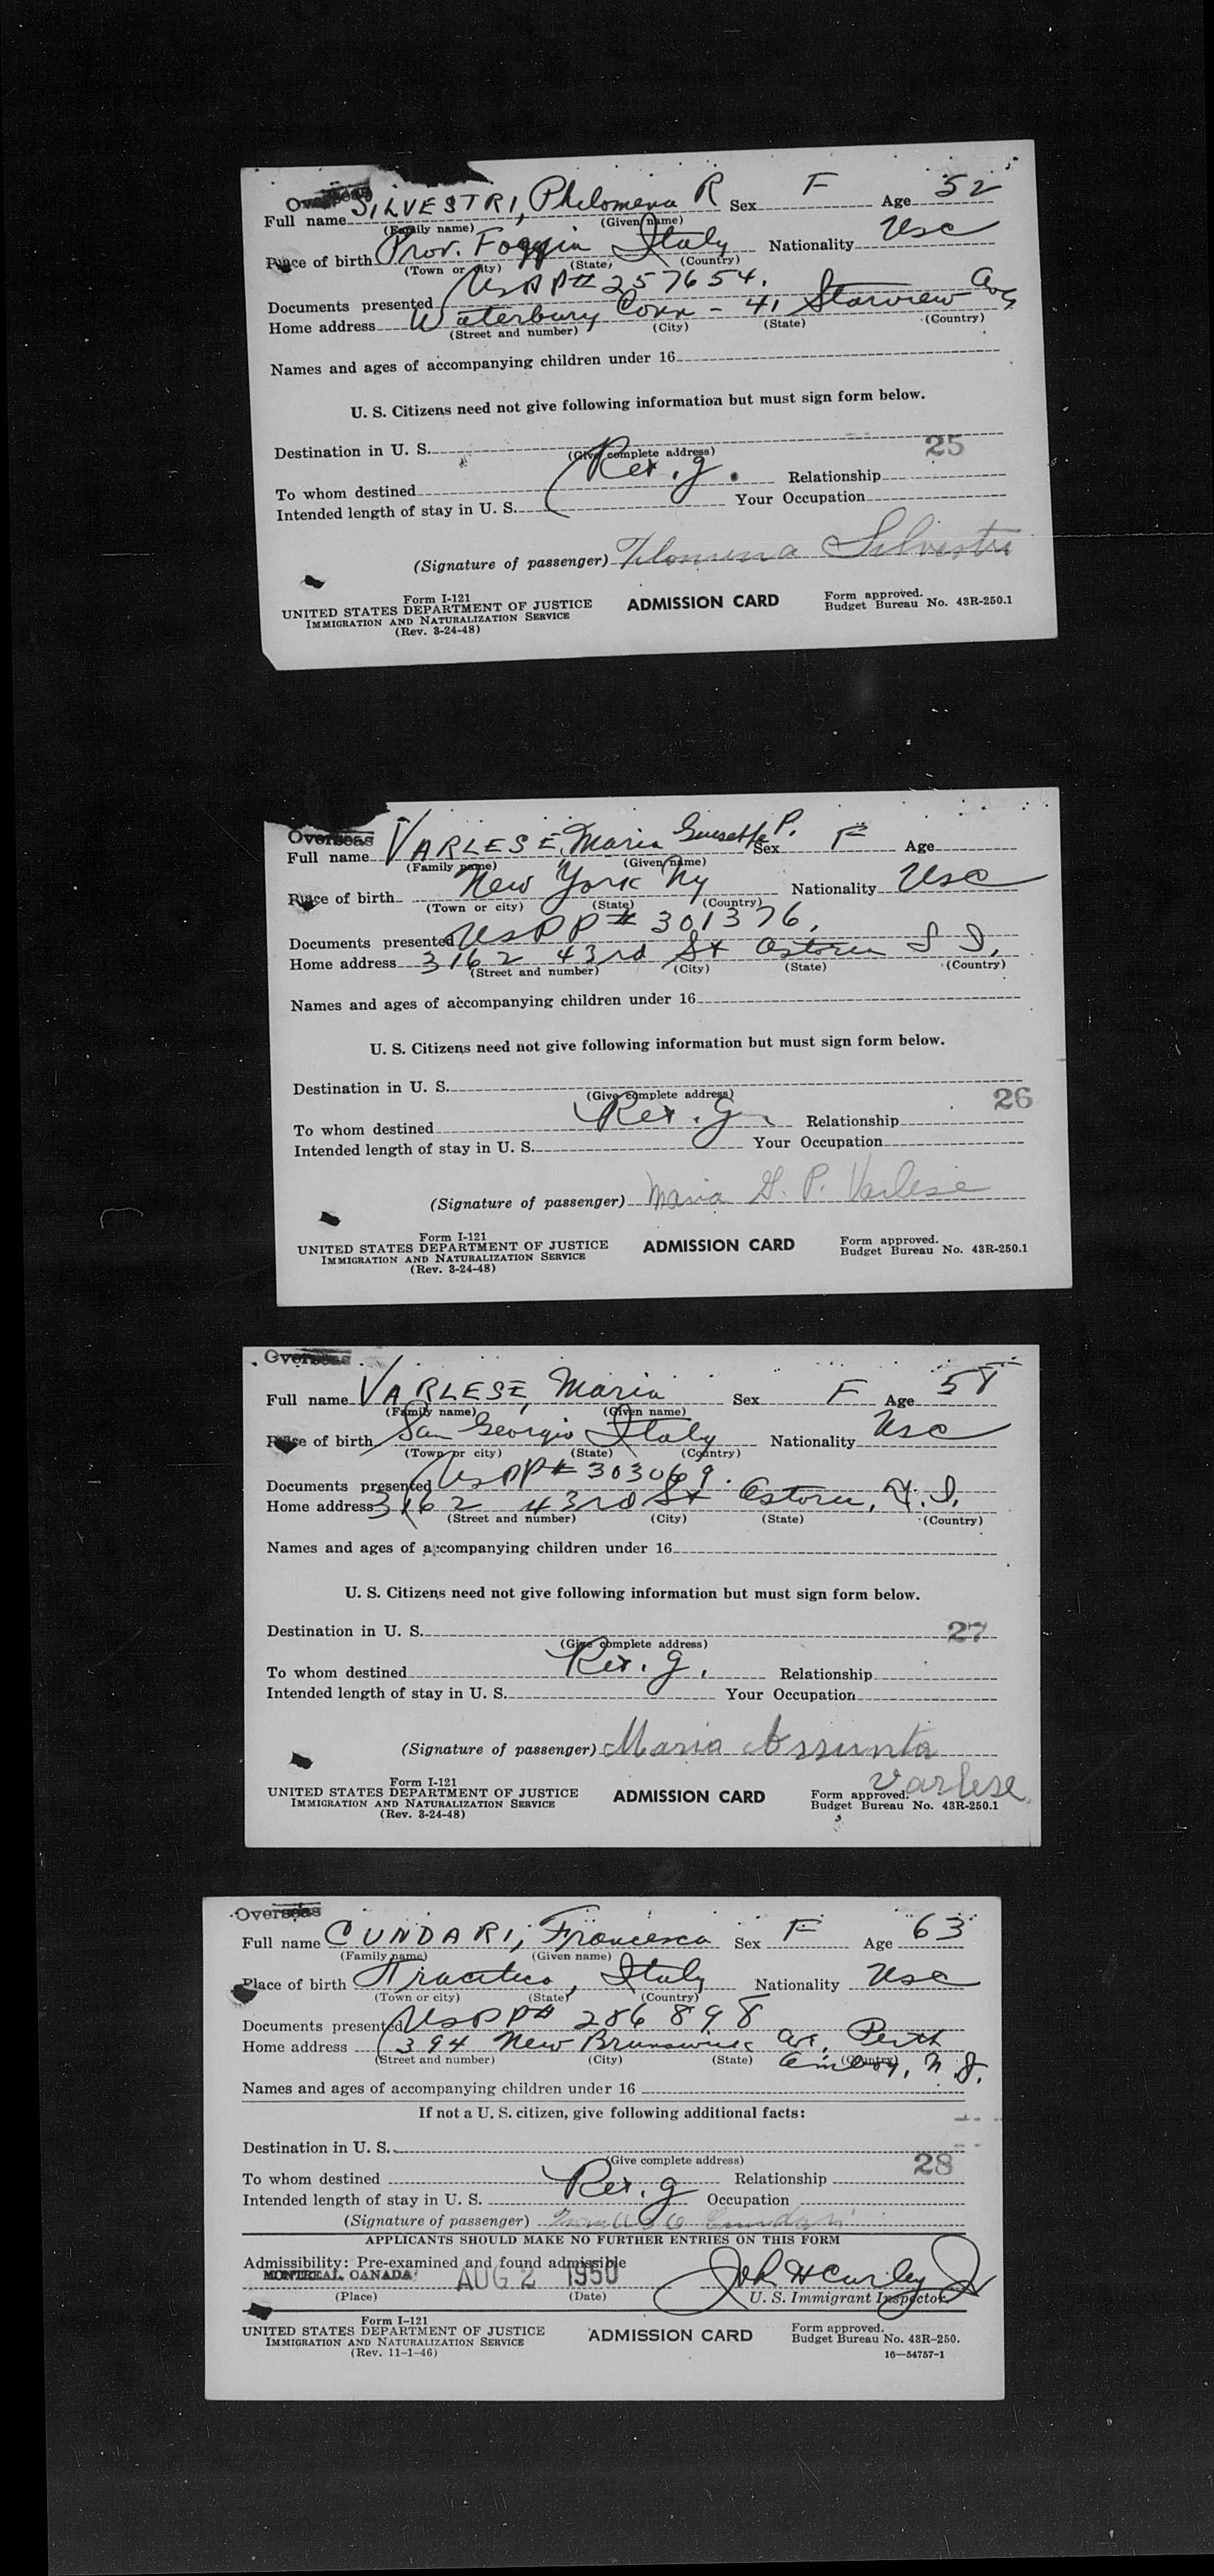 Overseas
Full name SILVESTRI, Philomena R Sex F Age 52
(Family name) (Given name)
Place of birth Prov. Foggia Italy Nationality Usc
(Town or city) (State) (Country)
Documents presented USPP# 257654.
Home address Waterbury Conn - 41 Starview Ave
(Street and number) (City) (State) (Country)
Names and ages of accompanying children under 16
U. S. Citizens need not give following information but must sign form below.
Destination in U. S. 25
(Give complete address)
To whom destined Rex. g. Relationship
Intended length of stay in U. S. Your Occupation
(Signature of passenger) Filomena Silvestri
Form I-121
UNITED STATES DEPARTMENT OF JUSTICE
IMMIGRATION AND NATURALIZATION SERVICE
(Rev. 3-24-48)
ADMISSION CARD
Form approved.
Budget Bureau No. 43R-250.1
Overseas
Full name VARLESE, Maria P. Sex F Age
(Family name) (Given name)
Place of birth New York Ny Nationality Usc
(Town or city) (State) (Country)
Documents presented USPP# 301376.
Home address 3162 43rd St Astoria
(Street and number) (City) (State) (Country)
Names and ages of accompanying children under 16
U. S. Citizens need not give following information but must sign form below.
Destination in U. S. 26
(Give complete address)
To whom destined Rex. g. Relationship
Intended length of stay in U. S. Your Occupation
(Signature of passenger) Maria G. P. Varlese
Form I-121
UNITED STATES DEPARTMENT OF JUSTICE
IMMIGRATION AND NATURALIZATION SERVICE
(Rev. 3-24-48)
ADMISSION CARD
Form approved.
Budget Bureau No. 43R-250.1
Overseas
Full name VARLESE, Maria Sex F Age 58
(Family name) (Given name)
Place of birth San Georgio Italy Nationality Usc
(Town or city) (State) (Country)
Documents presented USPP# 303069.
Home address 3162 43rd St Astoria,
(Street and number) (City) (State) (Country)
Names and ages of accompanying children under 16
U. S. Citizens need not give following information but must sign form below.
Destination in U. S. 27
(Give complete address)
To whom destined Rex. g. Relationship
Intended length of stay in U. S. Your Occupation
(Signature of passenger) Maria Assunta
Varlese
Form I-121
UNITED STATES DEPARTMENT OF JUSTICE
IMMIGRATION AND NATURALIZATION SERVICE
(Rev. 3-24-48)
ADMISSION CARD
Form approved.
Budget Bureau No. 43R-250.1
Overseas
Full name CUNDARI, Francesca Sex F Age 63
(Family name) (Given name)
Place of birth Italy Nationality Usc
(Town or city) (State) (Country)
Documents presented USPP# 286898
Home address 394 New Brunswick Av. Perth
Amboy, N.J.
(Street and number) (City) (State) (Country)
Names and ages of accompanying children under 16
If not a U. S. citizen, give following additional facts:
Destination in U. S.
(Give complete address) 28
To whom destined Rex. g Relationship
Intended length of stay in U. S. Occupation
(Signature of passenger) Cundari
APPLICANTS SHOULD MAKE NO FURTHER ENTRIES ON THIS FORM
Admissibility: Pre-examined and found admissible
MONTREAL, CANADA AUG 2 1950 Joh H Curley Jr
(Place) (Date) U. S. Immigrant Inspector.
Form I-121
UNITED STATES DEPARTMENT OF JUSTICE
IMMIGRATION AND NATURALIZATION SERVICE
(Rev. 11-1-46)
ADMISSION CARD
Form approved.
Budget Bureau No. 43R-250.
16—54757-1